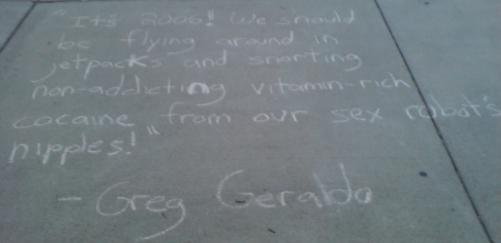 "It's 2006! We should
be flying around in
jetpacks and snorting
non-addicting vitamin-rich
cocaine from our sex robot's
nipples!"
- Greg Geraldo